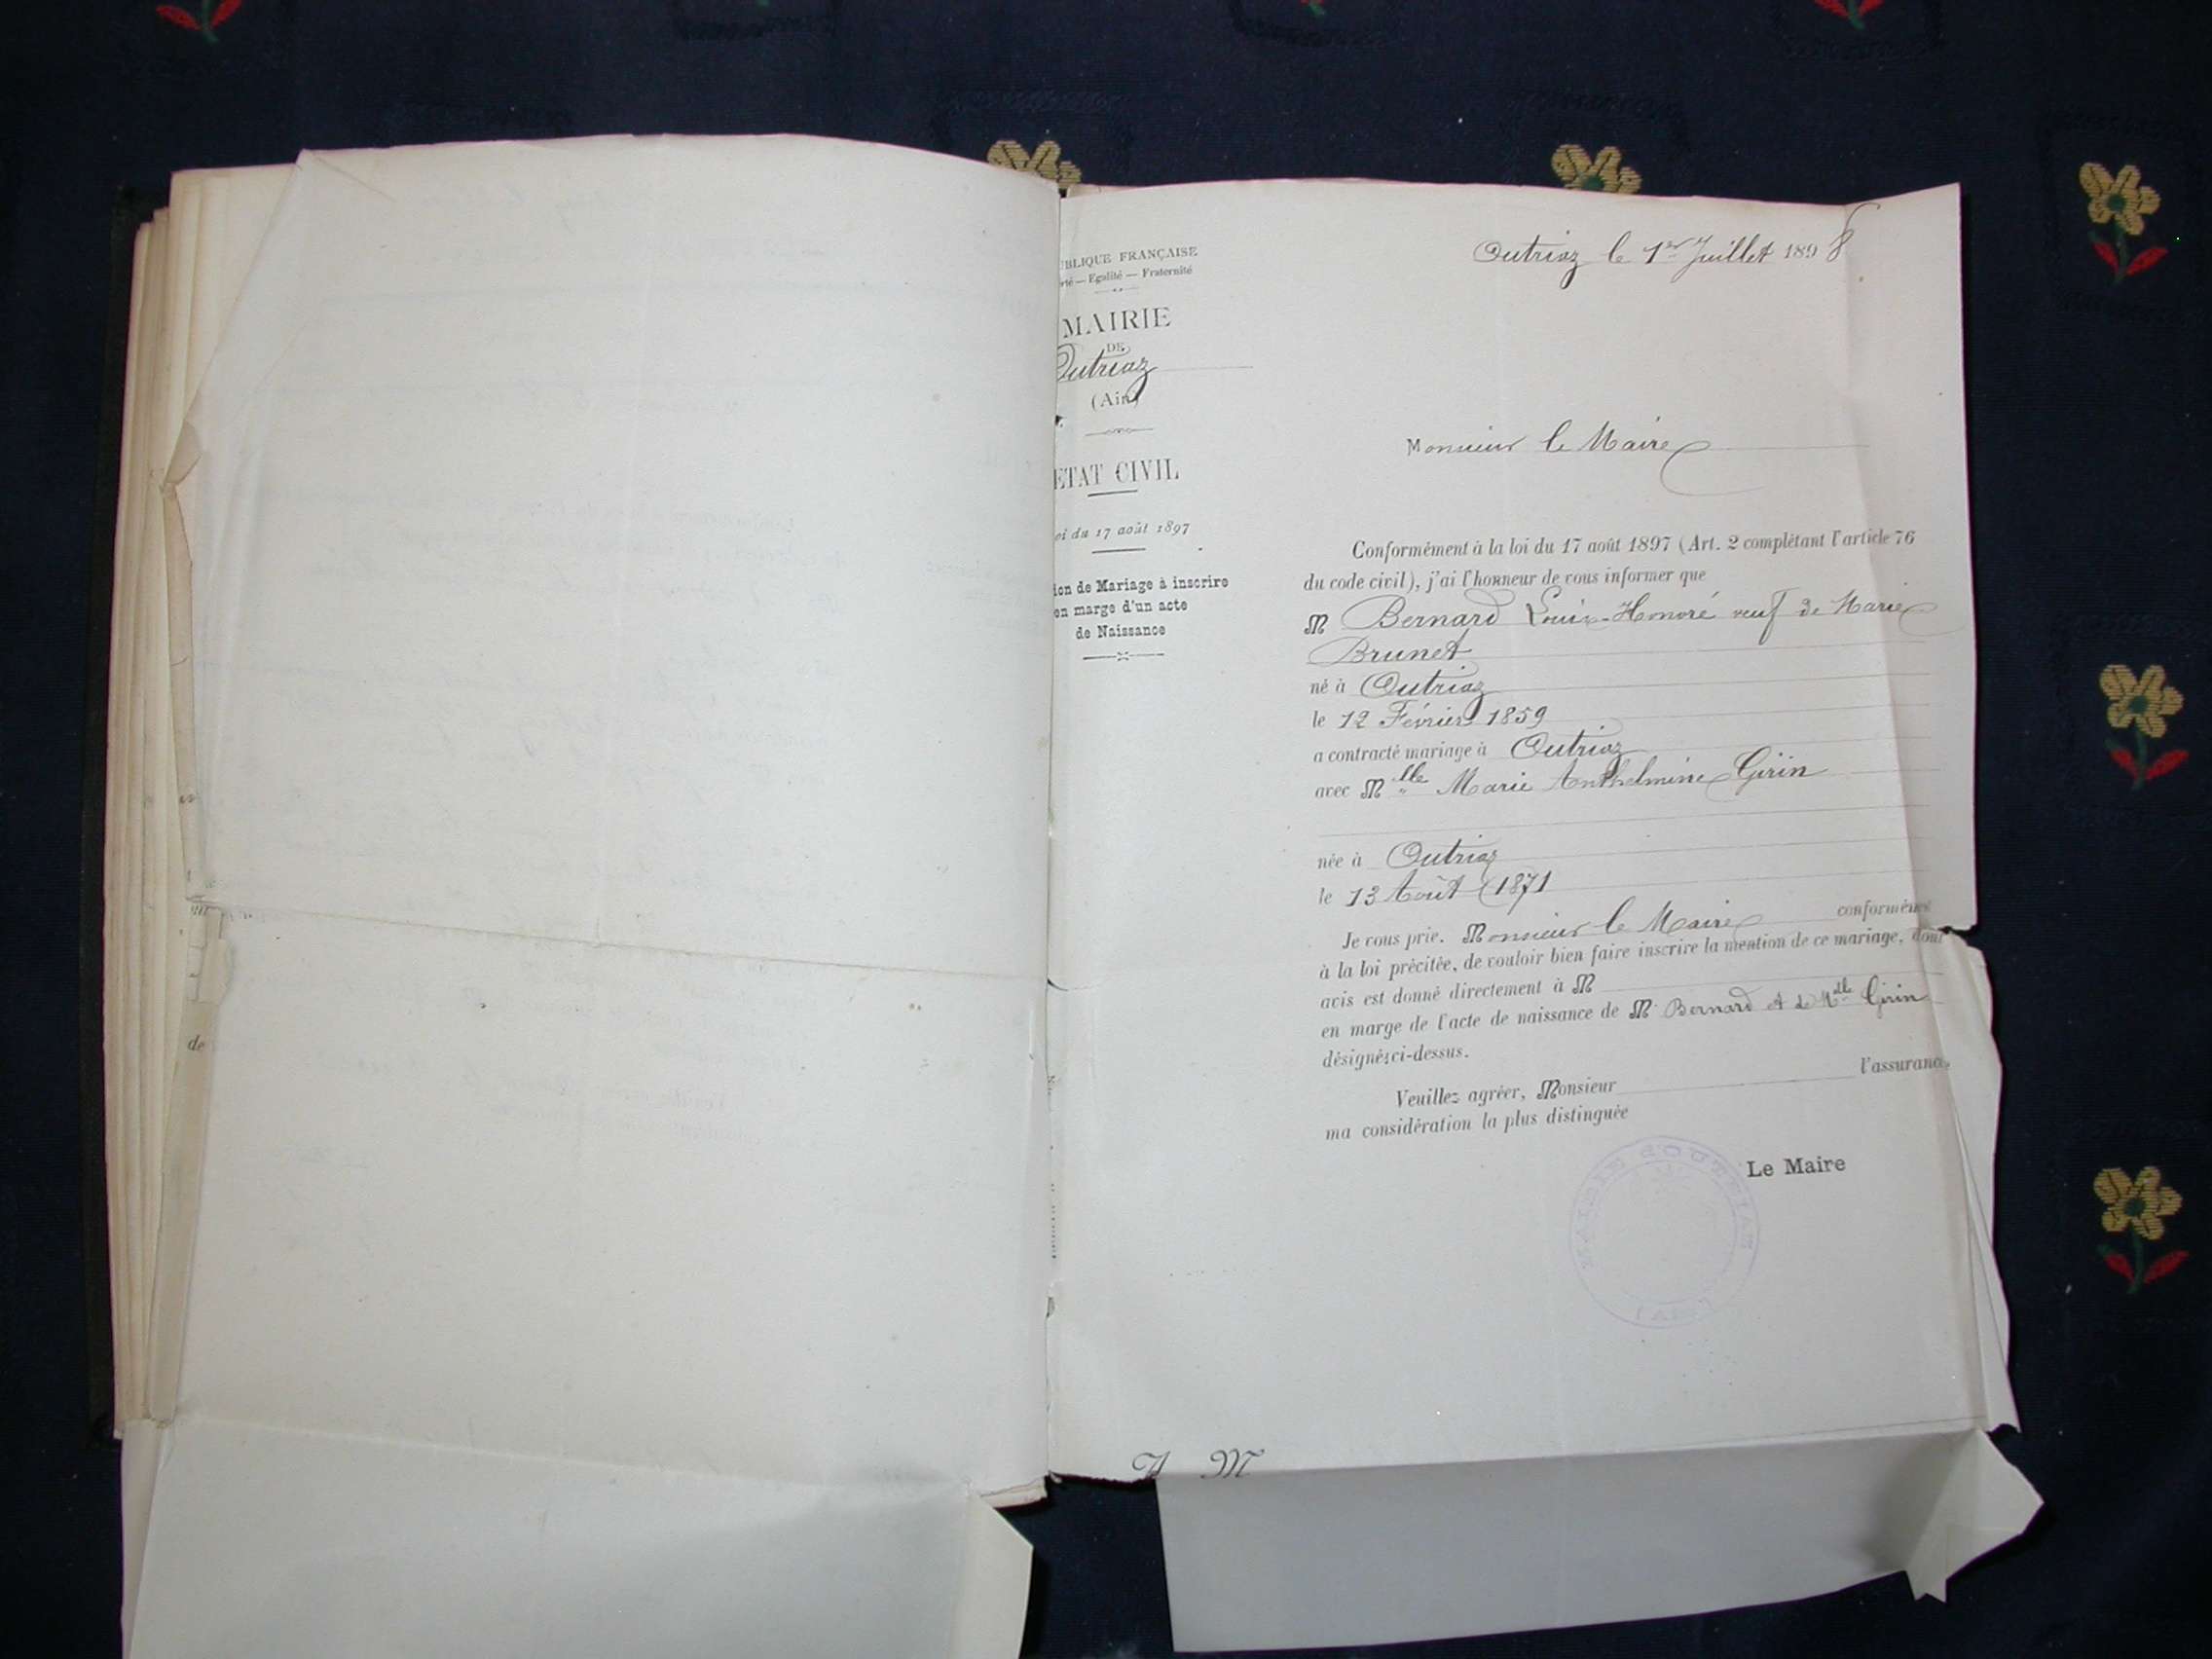 UBLIQUE FRANÇAISE
rté — Egalité — Fraternité
MAIRIE
DE
Outriaz
(Ain)
ETAT CIVIL
oi du 17 août 1897
ion de Mariage à inscrire
en marge d'un acte
de Naissance
Outriaz le 1er Juillet 1898
Monsieur le Maire
Conformément à la loi du 17 août 1897 (Art. 2 complétant l'article 76
du code civil), j'ai l'honneur de vous informer que
M Bernard Louis-Honoré veuf de Marie
Brunet
né à Outriaz
le 12 Février 1859
a contracté mariage à Outriaz
avec Mlle Marie Anthelmine Girin
née à Outriaz
le 13 Août 1871
Je vous prie. Monsieur le Maire conformément
à la loi précitée, de vouloir bien faire inscrire la mention de ce mariage, dont
avis est donné directement à M
en marge de l'acte de naissance de M. Bernard et de Mlle Girin
désignés ci-dessus.
Veuillez agréer, Monsieur l'assurance
ma considération la plus distinguée
Le Maire
MAIRIE D'OUTRIAZ
(AIN)
de